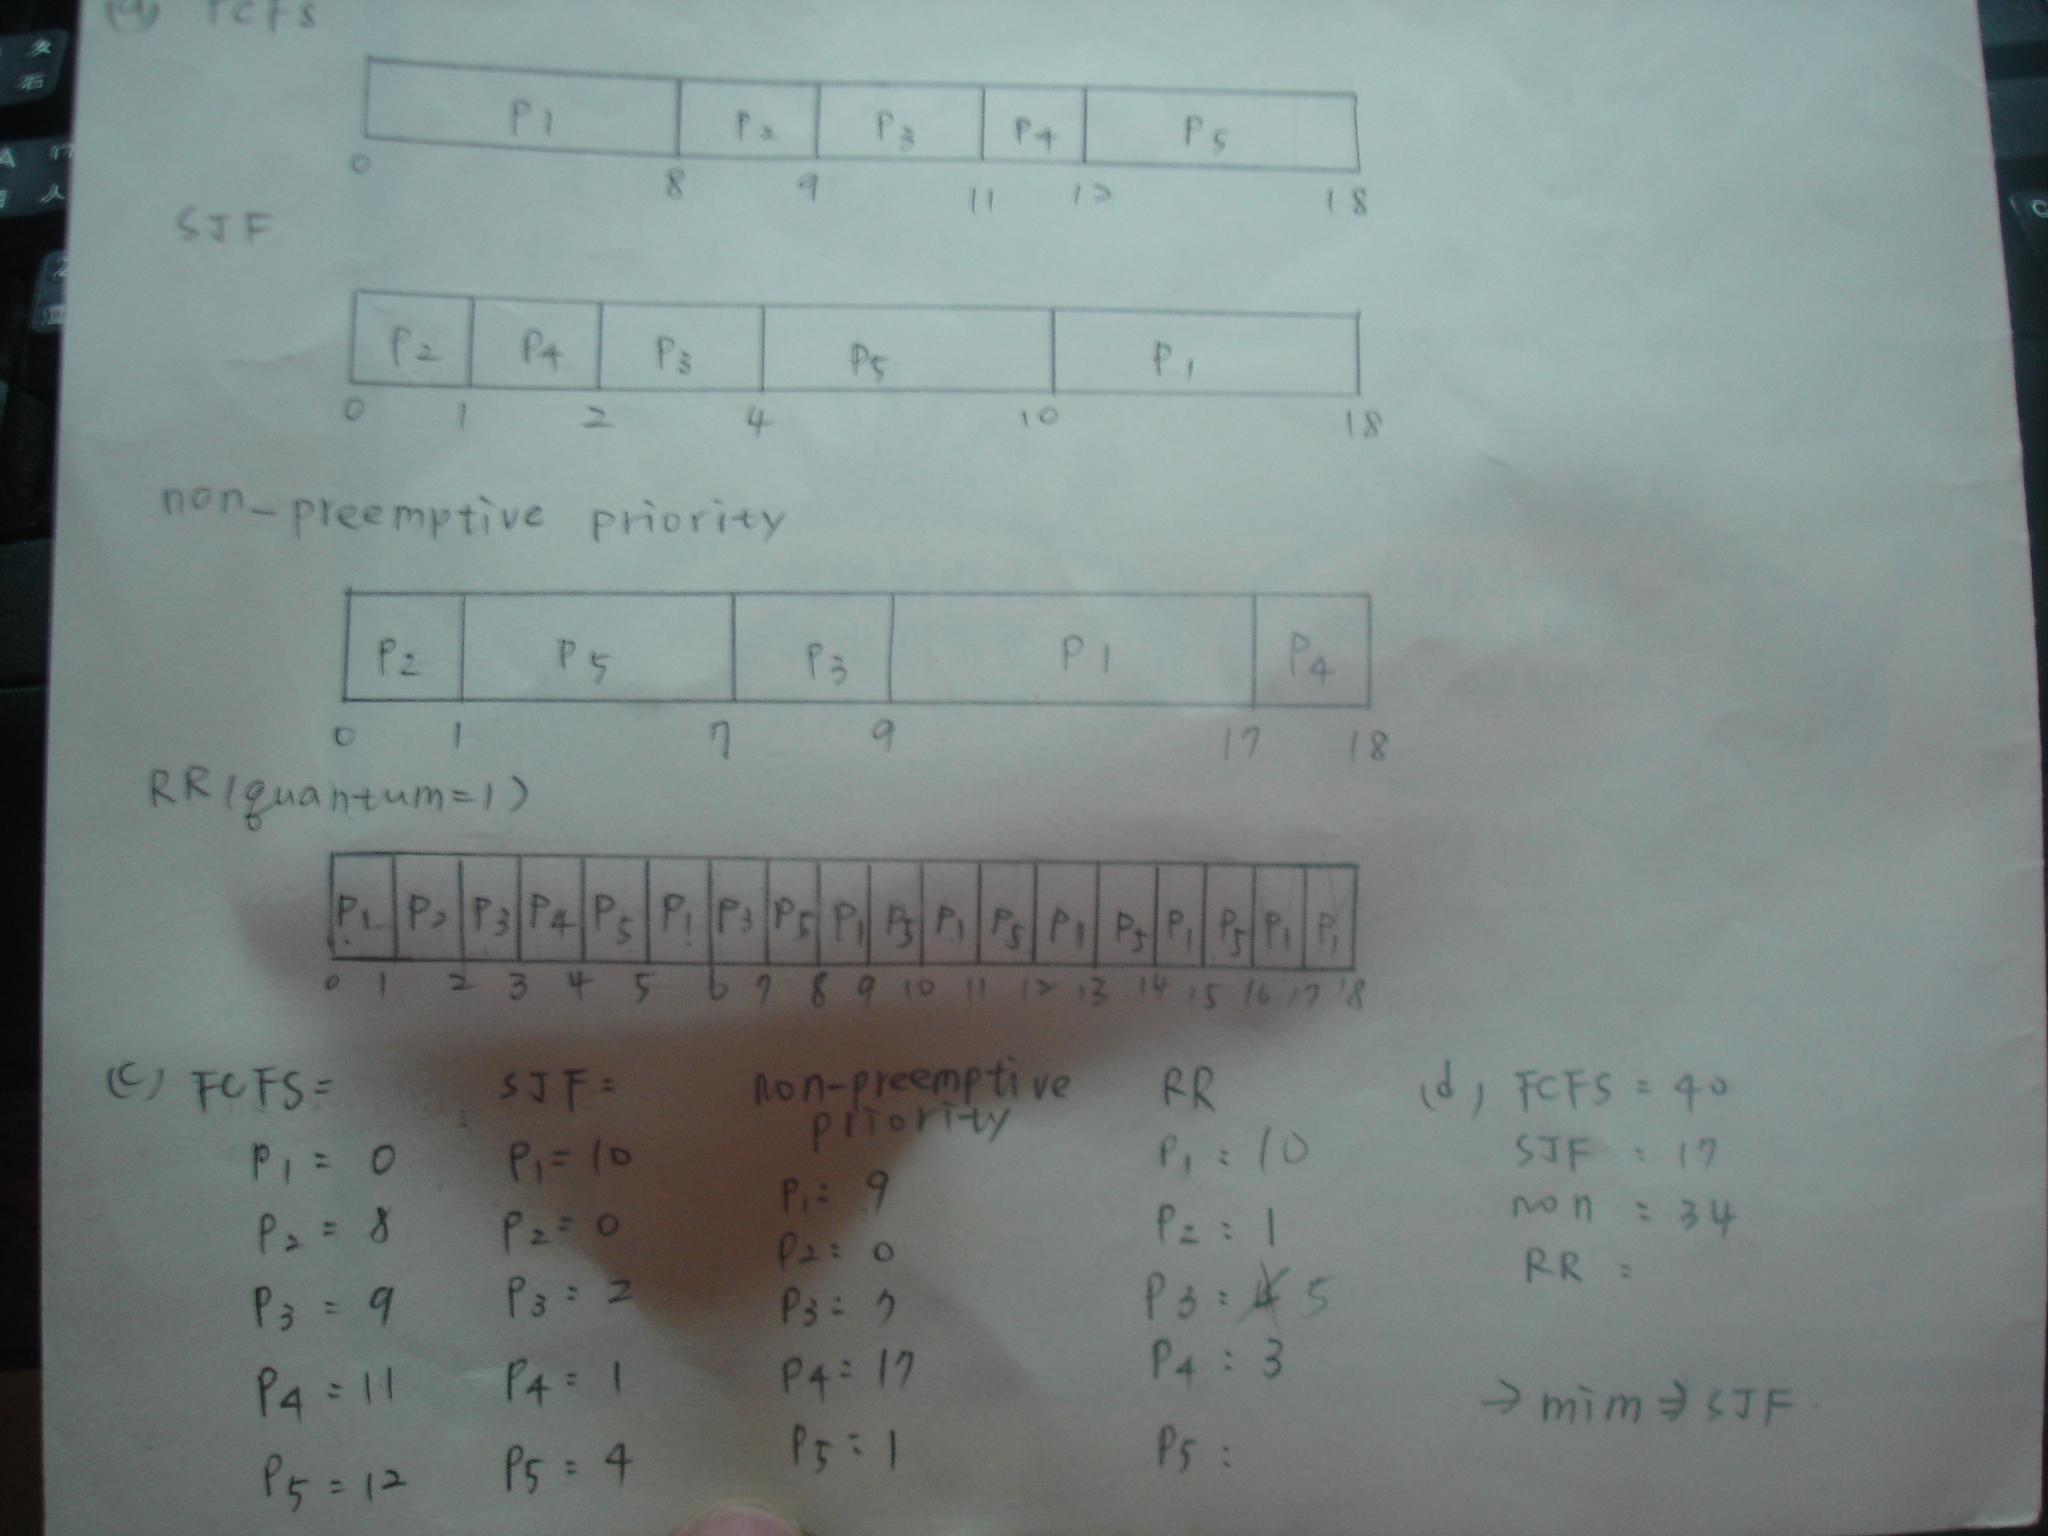 (a) FCFS
P1 P2 P3 P4 P5
0 8 9 11 12 18
SJF
P2 P4 P3 P5 P1
0 1 2 4 10 18
non-preemptive priority
P2 P5 P3 P1 P4
0 1 7 9 17 18
RR (quantum=1)
P1 P2 P3 P4 P5 P1 P3 P5 P1 P5 P1 P5 P1 P5 P1 P5 P1 P1
0 1 2 3 4 5 6 7 8 9 10 11 12 13 14 15 16 17 18
(c) FCFS=
P1 = 0
P2 = 8
P3 = 9
P4 = 11
P5 = 12
SJF=
P1= 10
P2= 0
P3= 2
P4= 1
P5= 4
non-preemptive
priority
P1= 9
P2= 0
P3= 7
P4= 17
P5= 1
RR
P1: 10
P2: 1
P3: 5
P4: 3
P5:
(d) FCFS = 40
SJF : 17
non : 34
RR =
→ mim ⇒ SJF.